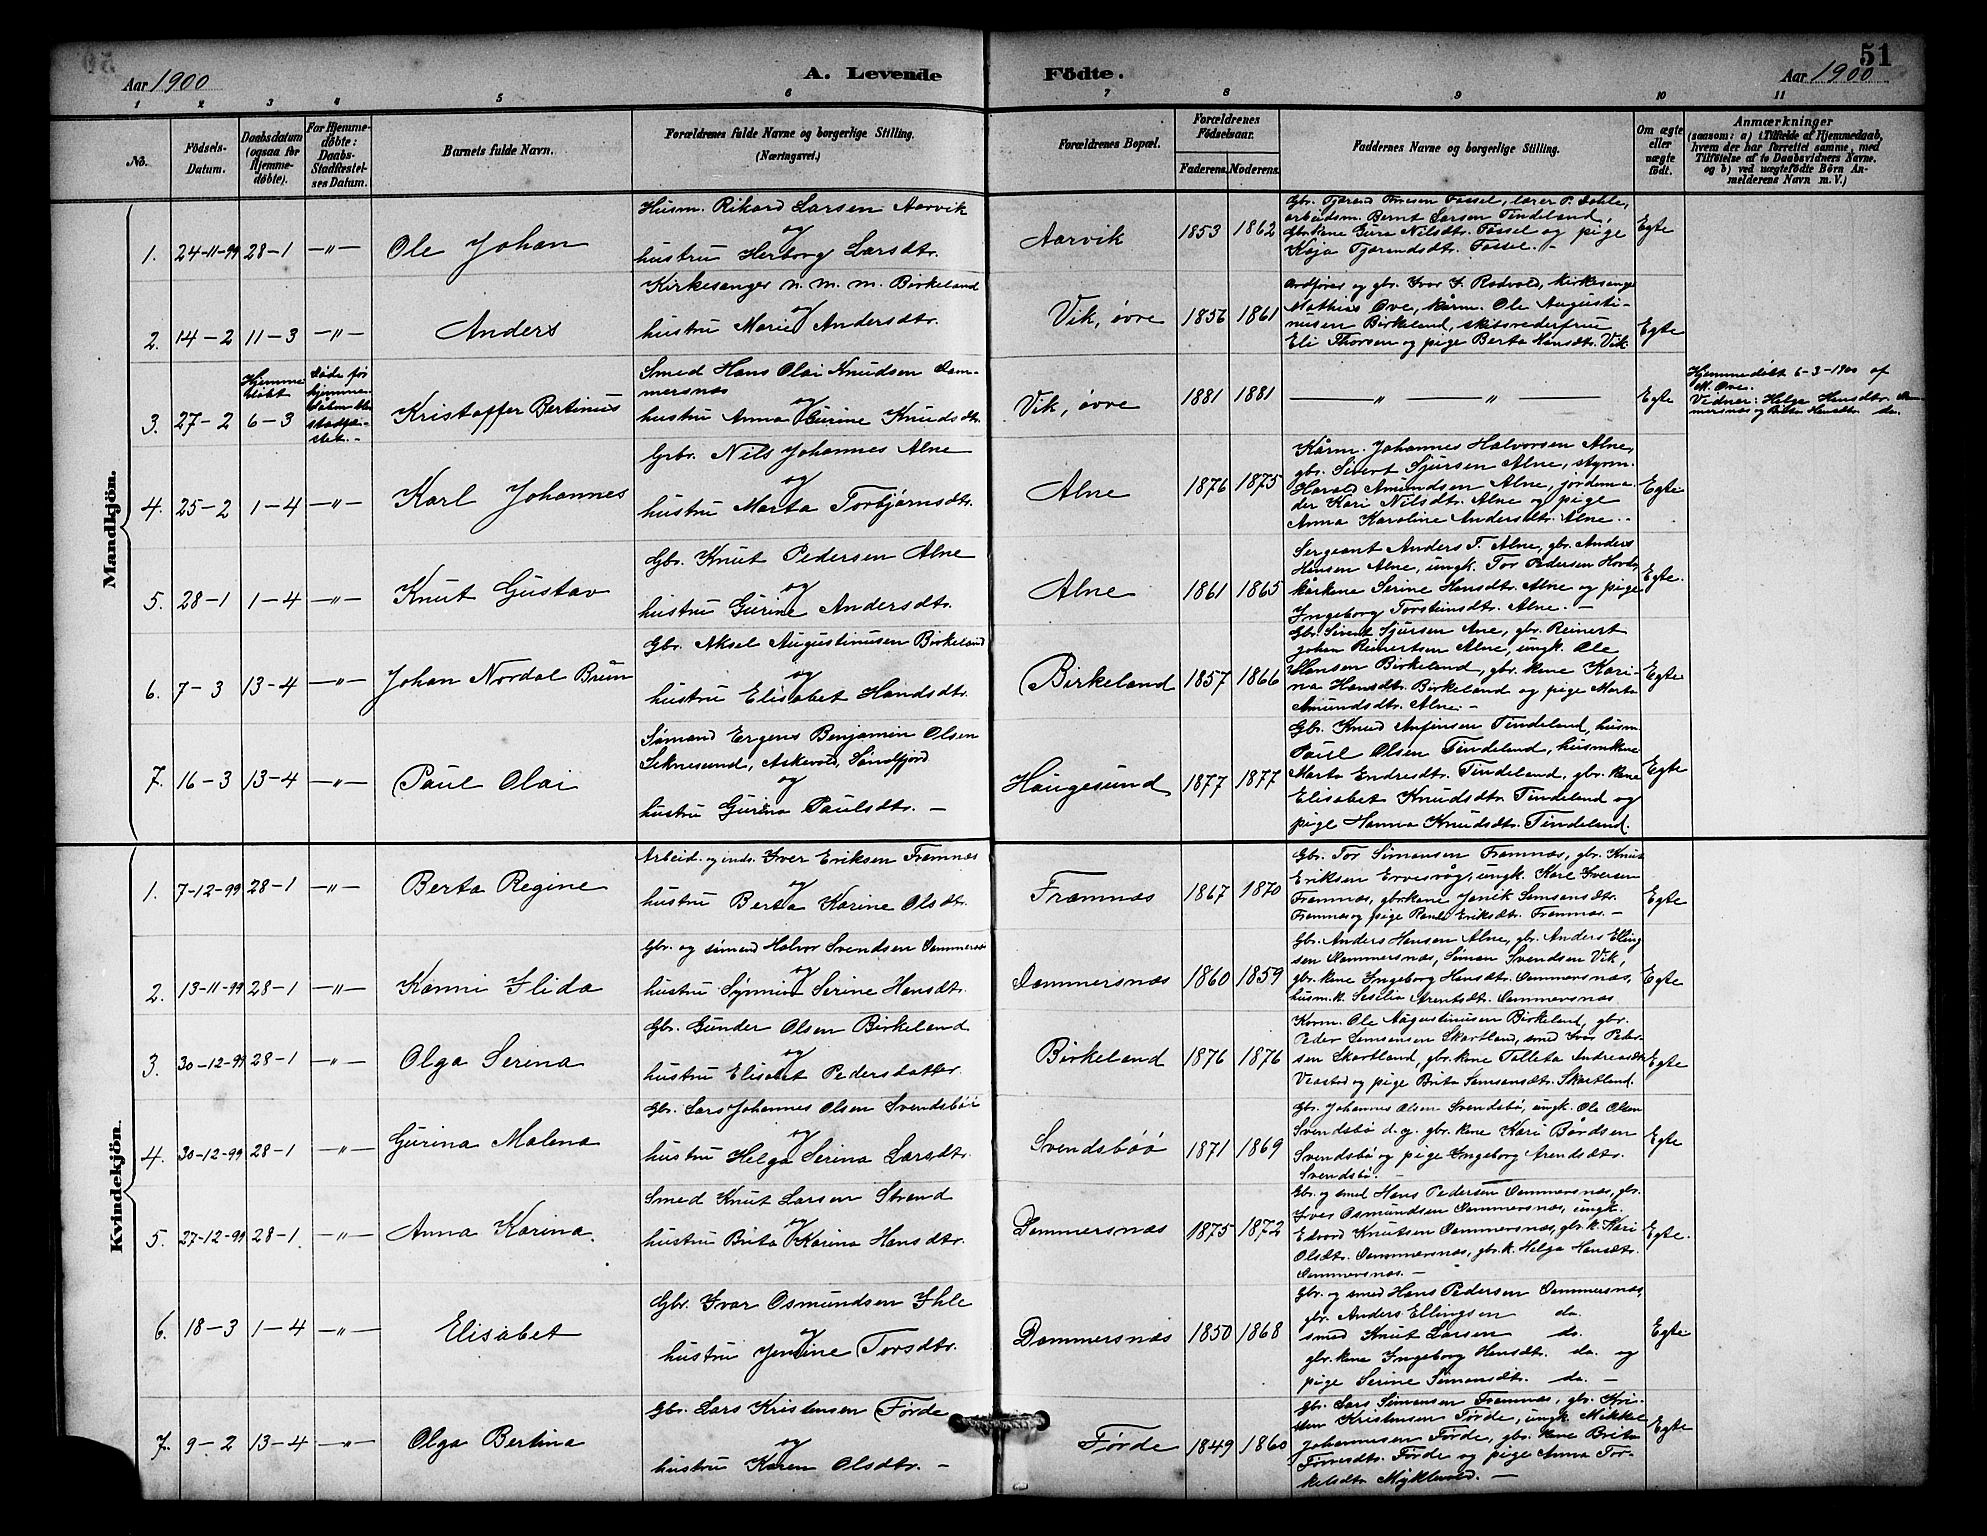 51
Aar 1900
A. Levende
Födte.
Aar 1900
1 2 3 4 5 6 7 8 9 10 11
No.
Födsels-Datum.
Daabsdatum (ogsaa for Hjemme-döbte).
For Hjemme-döbte: Daabs-Stadfæstel-ses Datum.
Barnets fulde Navn.
Forældrenes fulde Navne og borgerlige Stilling. (Næringsvei.)
Forældrenes Bopæl.
Forældrenes Födselsaar.
Faderens. Moderens.
Faddernes Navne og borgerlige Stilling.
Om ægte eller uægte födt.
Anmærkninger
(saasom: a) i Tilfælde af Hjemmedaab,
hvem der har forrettet samme, med
Tilföielse af to Daabsvidners Navne.
og b) ved uægtefödte Börn An-
melderens Navn m. V.)
Mandkjön.
1. 24-11-99 28-1 —"— Ole Johan
Husm. Rikard Larsen Aarvik
og
hustru Herborg Larsdtr.
Aarvik 1853 1862
Gbr. Tjærand Fossel, lærer P. Dahle,
arbeidsm. Bernt Larsen Tindeland,
Gbrkone Guro Nilsdtr. Fossel og pige
Kaja Tjærandsdtr. Fossel. —
Egte
2. 14-2 11-3 —"— Anders
Kirkesanger n. m. m. Birkeland
og
hustru Marie Andersdtr.
Vik, øvre 1856 1861
Ordfører og gbr. Ivar I. Rødvold, kirkesanger
Mathias Øve, kårm. Ole Augusti-
nusen Birkeland, skitsrederfrue
Eli Thorsen og pige Berta Hansdtr. Vik
Egte
3. 27-2 Hjemme døbt 6-3 Døde før hjemme-dåben blev stadfæ-stet. — Kristoffer Bertinius
Smed Hans Olai Knudsen Dom-
mersnæs
og
hustru Anna Gurine Knudsdtr.
Vik, øvre 1881 1881 — " — " —
Egte
Hjemmedøbt 6-3-1900 af
M. Øve.
Vidner: Helga Hansdtr. Dom-
mersnæs og Brita Hansdtr. do.
4. 25-2 1-4 —"— Karl Johannes
Gbr. Nils Johannes Alne
og
hustru Marta Torbjørnsdtr.
Alne 1876 1875
Kårm. Johannes Halvorsen Alne,
gbr. Sivert Sjursen Alne, styrm.
Harald Amundsen Alne, jordemo-
der Kari Nilsdtr. Alne og pige
Anna Karoline Andersdtr. Alne. —
Egte
5. 28-1 1-4 —"— Knut Gustav
Gbr. Knut Pedersen Alne
og
hustru Gurine Andersdtr.
Alne 1861 1865
Sergeant Anders T. Alne, gbr. Anders
Hansen Alne, ungk. Tor Pedersen
kårkone Serine Hansdtr. Alne og pige
Ingeborg Torsteinsdtr. Alne. —
Egte.
6. 7-3 13-4 —"— Johan Nordal Brun
Gbr. Aksel Augustinusen Birkeland
og
hustru Elisabet Handsdtr.
Birkeland 1857 1866
Gbr. Sivert Sjursen Ane, gbr. Reinert
Johan Reinertsen Alne, ungk. Ole
Hansen Birkeland, gbr. kone Kari-
na Hansdtr. Birkeland og pige Marta
Amundsdtr. Alne. —
Egte
7. 16-3 13-4 —"— Paul Olai
Sømand Ergens Benjamin Olsen
Seknesund, Askevold, Søndfjord
og
hustru Gurina Paulsdtr. —
Haugesund 1877 1877
Gbr. Knud Anfinsen Tindeland, husm.
Paul Olsen Tindeland, husmkone
Marta Endresdtr. Tindeland, gbr. kone
Elisabet Knudsdtr. Tindeland og
pige Hanna Knudsdtr. Tindeland.
Egte
Kvindekjön.
1. 7-12-99 28-1 —"— Berta Regine
Arbeid. og inds. Iver Eriksen Framnæs
og
hustru Berta Karine Olsdtr.
Framnæs 1867 1870
Gbr. Tor Simonsen Framnæs, gbr. Knut
Eriksen Ervesvåg, ungk. Karl Iversen
Framnæs, gbrkone Janik Samsonsdtr.
Framnæs og pige Eriksdtr. Framnæs. —
Egte
2. 13-11-99 28-1 —"— Kanni Ilida
Gbr. og sømand Halvor Svendsen Dommersnæs
og
hustru Synniva Serine Hansdtr.
Dommersnæs 1860 1859
Gbr. Anders Hansen Alne, gbr. Anders Elling-
sen Dommersnæs, Simon Svendsen Vik,
gbr. kone Ingeborg Hansdtr. Dommersnæs,
husm.k. Sesilia Arentsdtr. Dommersnæs
Egte
3. 30-12-99 28-1 —"— Olga Serina
Gbr. Gunder Olsen Birkeland
og
hustru Elisabet Pedersdatter
Birkeland 1876 1876
Korm. Ole Augustinusen Birkeland, gbr.
Peder Samsonsen Skartland, smed Ivar Peder-
sen Skartland, gbr. kone Tolleta Andreasdtr.
og pige Brita Samsonsdtr. Skartland.
Egte
4. 30-12-99 28-1 —"— Gurina Malena
Gbr. Lars Johannes Olsen Svendsbøi
og
hustru Helga Serina Larsdtr.
Svendsbøø 1871 1869
Gbr. Johannes Olsen Svendsbø, ungk. Ole Olsen
Svendsbø d.y. gbr. kone Kari Bårdsen
Svendsbø og pige Ingeborg Arendsdtr.
Svendsbø. —
Egte
5. 27-12-99 28-1. —"— Anna Karina.
Smed Knut Larsen Strand
og
hustru Brita Karina Hansdtr.
Dommersnæs 1875 1872
Gbr. og smed Hans Pedersen Dommersnæs, gbr.
Iver Osmundsen Dommersnæs, ungk.
Edvard Knutsen Dommersnæs, gbr.k. Kari
Olsdtr. Dommersnæs, gbr.k. Helga Hansdtr.
Dommersnæs. —
Egte.
6. 18-3 1-4 —"— Elisabet
Gbr. Ivar Osmundsen Ihle
og
hustru Jensine Torsdtr.
Dommersnæs 1850 1868
Gbr. og smed Hans Pedersen Dommersnæs,
gbr. Anders Ellingsen do.
smed Knut Larsen do.
gbr. kone Ingeborg Hansdtr. do. og
pige Serine Simonsdtr. do. —
Egte
7. 9-2 13-4 —"— Olga Bertina
Gbr. Lars Kristensen Førde
og
hustru Karen Olsdtr. —
Førde 1849 1860
Gbr. Lars Simonsen Framnæs, gbr. Kri-
sten Kristensen Førde, ungk. Mikkel
Johannesen Førde, gbr. kone Brita
Førde og pige Anna Tor-
kelsdtr. —
Egte